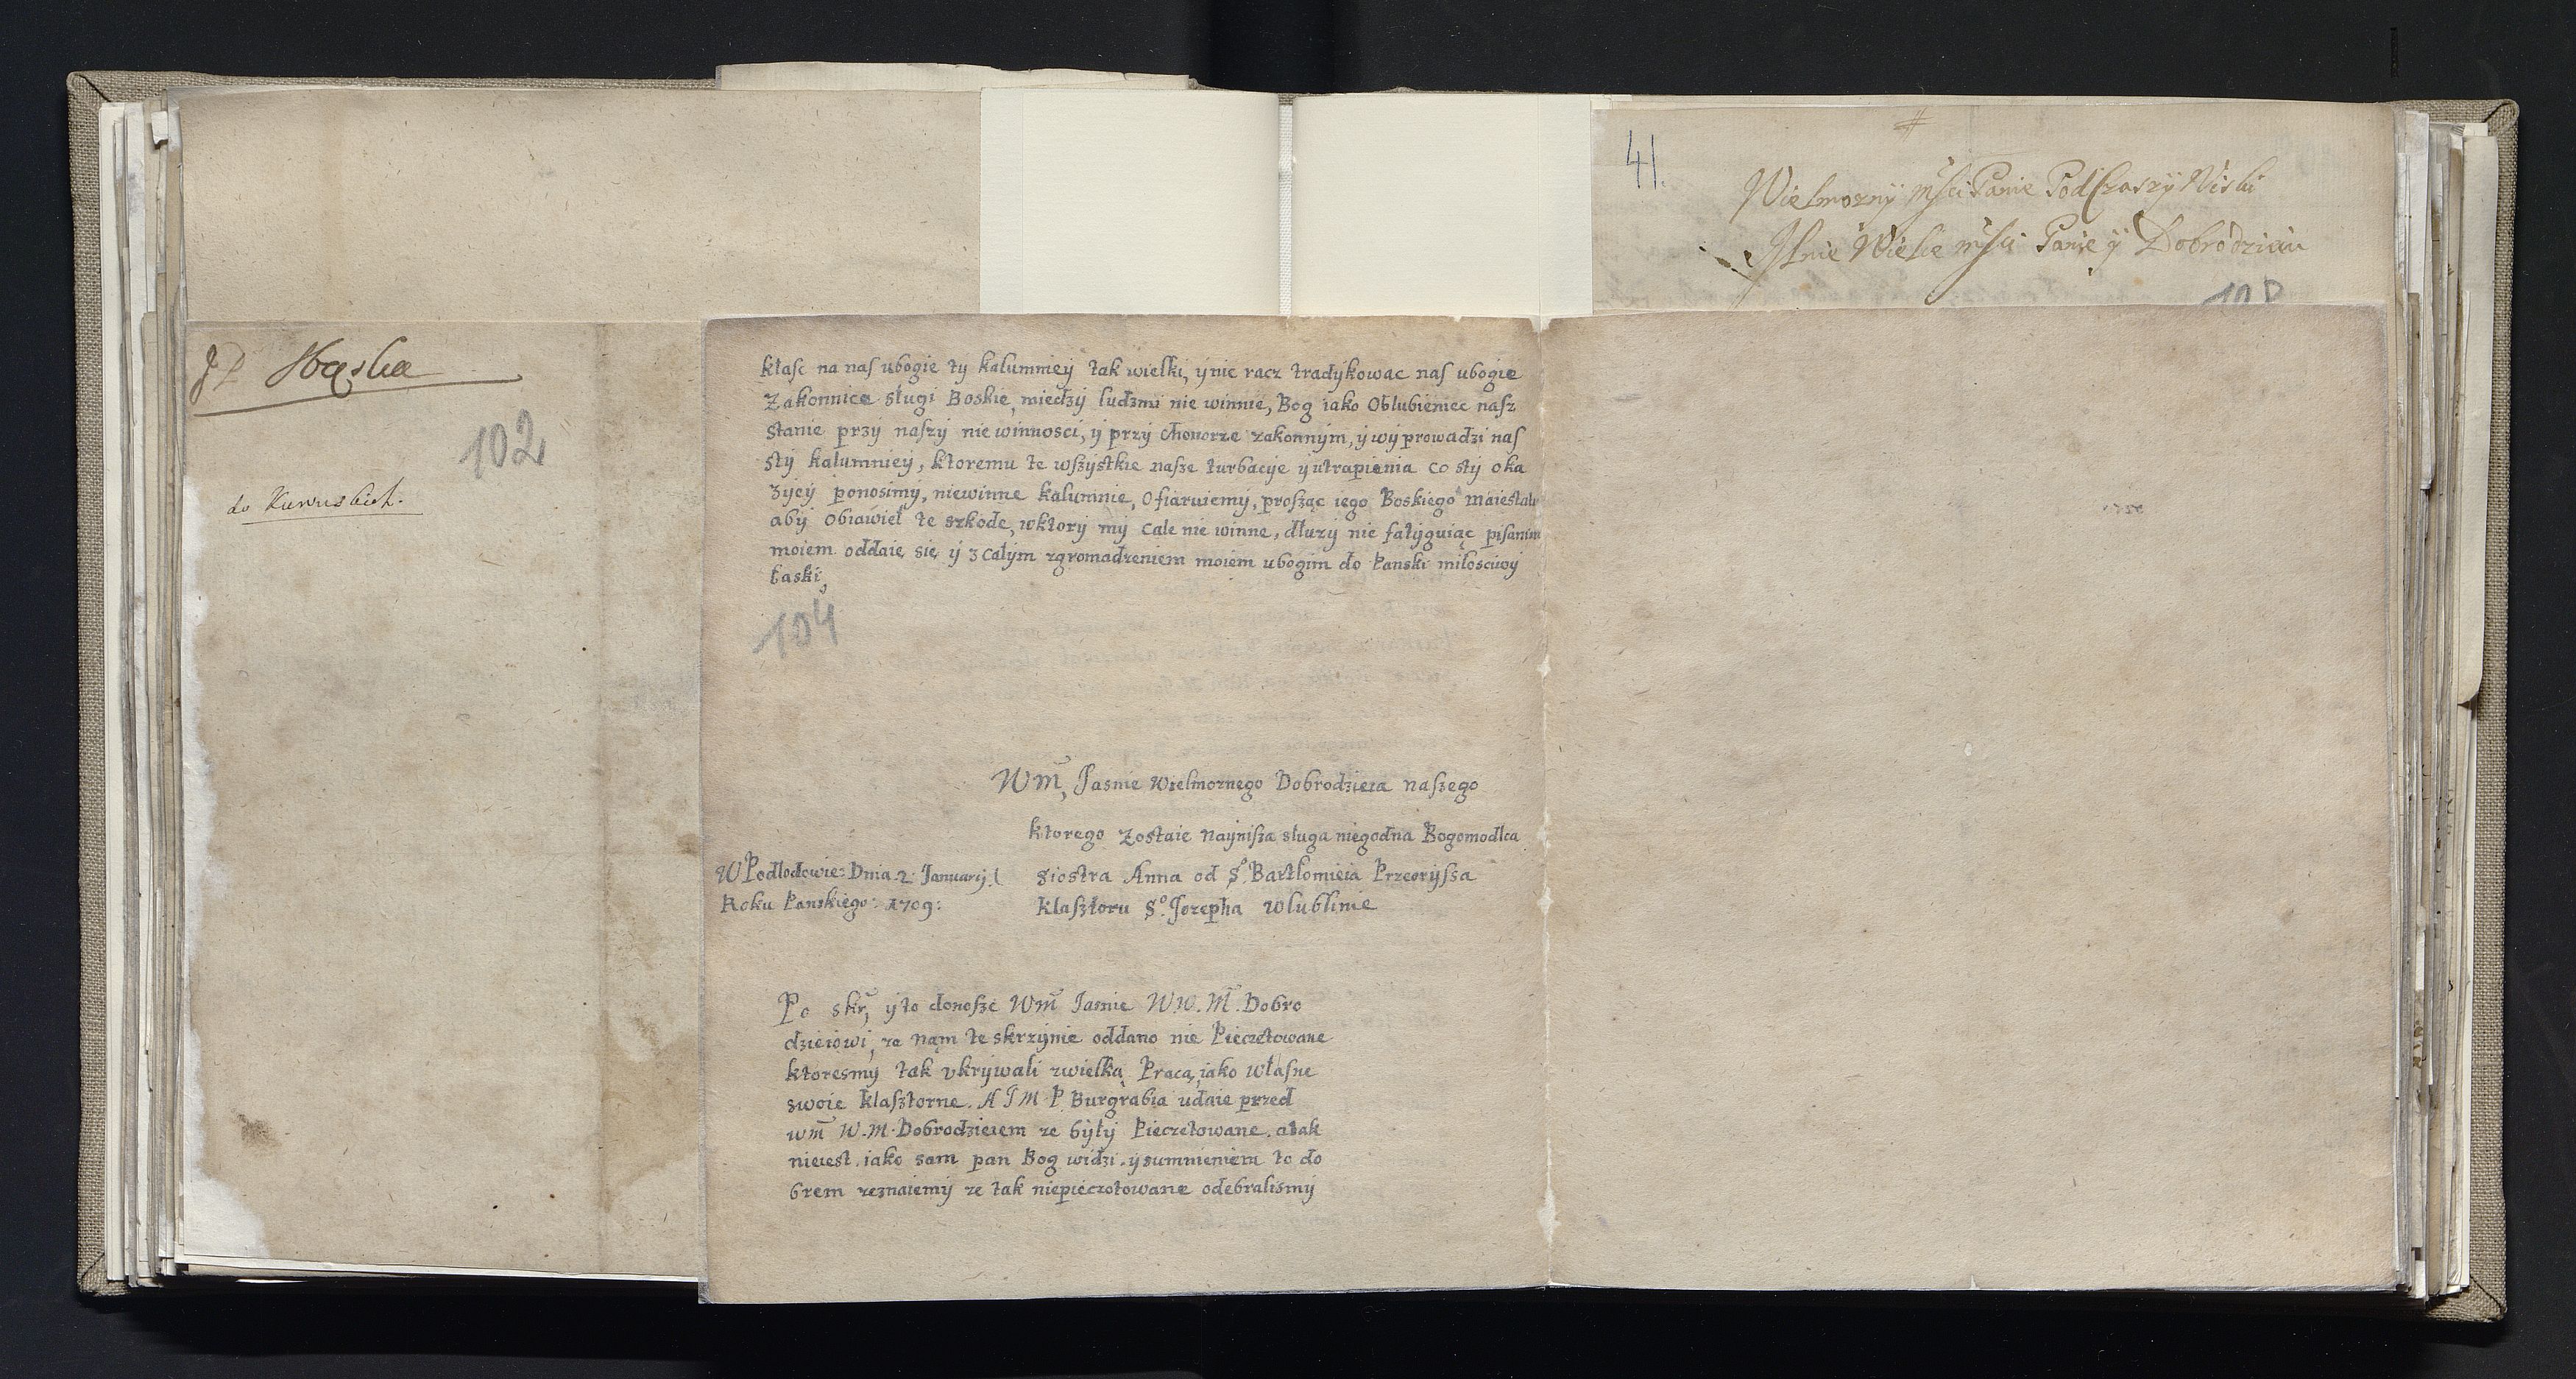 JP Skąska
102
do Kurus bich.
kłasc na nas ubogie ty kalumniey tak wielki, y nie racz tradykowac nas ubogie
Zakonnice sługi Boskie, miedzy ludzmi nie winnie, Bog iako Oblubieniec nasz
stanie przy naszy nie winnosci, y przy chonorze zakonnym, y wyprowadzi nas
sty kalumniey, ktoremu te wszystkie nasze turbacye y utrapienia co sty oka
zyey ponosimy, niewinne kalumnie, Ofiaruiemy, prosząc iego Boskiego maiestatu
aby Obiawieł te szkode, wktory my cale nie winne, dłuzy nie fatyguiąc pisanim
moiem oddaię się y z całym zgromadzeniem moiem ubogim do Panski miłosciwy
łaski,
104
Wm̃, Jasnie Wielmoznego Dobrodzieia naszego
ktorego zostaie naynisza sługa niegodna Bogomodlca
WPodlodowie: Dnia 2 January
siostra Anna od Sº. Bartłomieia Przeorysza
Roku Panskiego: 1709:
klasztoru Sº. Jozepha wlublinie
Po skr̃, y to donosze Wm̃ Jasnie W.W.M̃. Dobro
dzieiowi, ze nąm te skrzynie oddano nie Pieczetowane
ktoresmy tak vkrywali zwielką Pracą, iako własne
swoie klasztorne. A J M P. Burgrabia udaie przed
wm̃ W.M. Dobrodzieiem ze były Pieczetowane. atak
nieiest. iako sam pan Bog widzi. y sumnieniem to do
brem zeznaiemy ze tak niepieczotowane odebralismy
41.
#
Wielmozny Mści Panie PodCzaszy
Wielce mści Panie y Dobrodzieiu
108